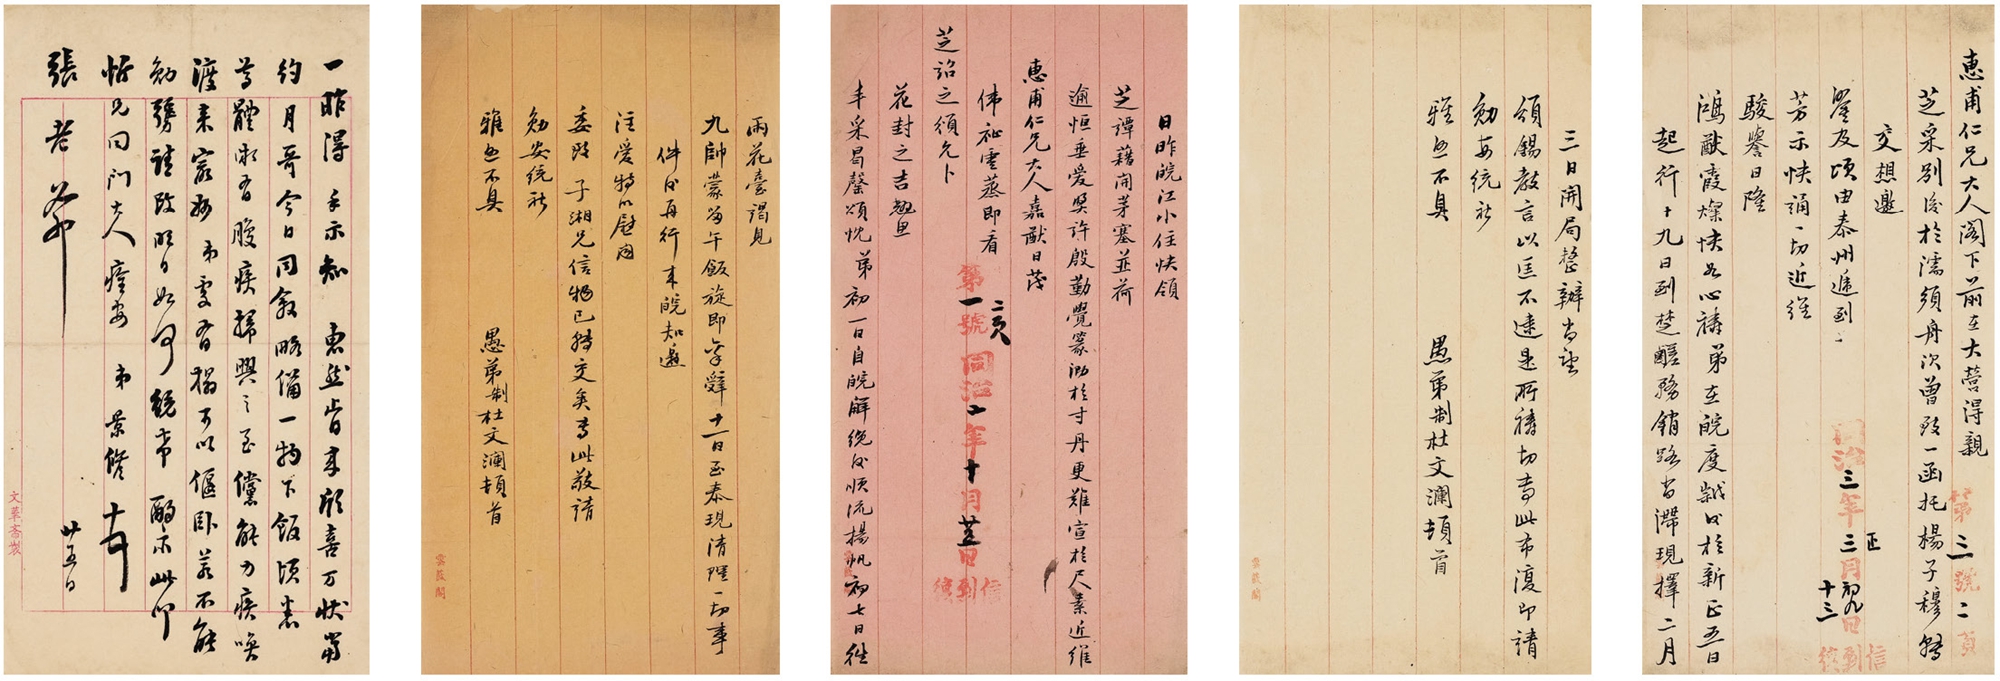 惠甫仁兄大人閣下前在大營得親
芝采別後於濡須舟次曾致一函托楊子穆轉
交想邀
鑒及頃由泰州遞到
芳示快誦一切近維
駿譽日隆
鴻猷霞燦快如心禱弟在皖度歲後於新正五日
起行十九日到楚鹺務銷路尚滯現擇二月
第三號二頁
同治三年三月初九日
正
十三
信到復
三日開局整辦尚望
頒錫教言以匡不逮是所禱切專此布復即請
勛安統祈
雅照不具
愚弟制杜文瀾頓首
雲葭閣
日昨皖江小住快領
芝譚藉開茅塞並荷
逾恒垂愛獎許殷勤覺篆泐於寸丹更難宣於尺素近維
惠甫仁兄大人嘉猷日茂
偉祉雲蒸即看
芝詔之頒允卜
花封之吉翹思
丰采曷罄頌忱弟初一日自皖解纜後順流揚帆初七日往
第一號二頁
同治二年十月
信到復
雨花臺謁見
九帥蒙留午飯旋即稟辭十一日至泰現清理一切事
件後再行來皖知邀
注愛特以慰聞
委致子湘兄信物已轉交矣專此敬請
勛安統祈
雅照不具
愚弟制杜文瀾頓首
雲葭閣
一昨得手示知惠然肯來欣喜萬狀當
約月哥今日同敘略備一物下飯頃悉
尊體微有腹疾掃興之至儻能力疾喚
渡來寓極弟處有榻可以偃臥若不能
勉彊請改明日如何統希酌示此叩
惄兄同門大人痊安弟景賢頓首
張老爺
廿五日
文華齋製